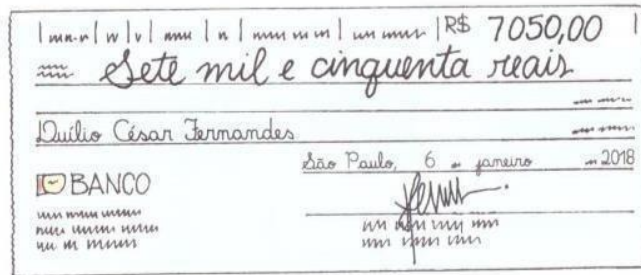 R$ 7050,00
Sete mil e cinquenta reais
Duílio César Fernandes
São Paulo, 6 janeiro 2018
BANCO